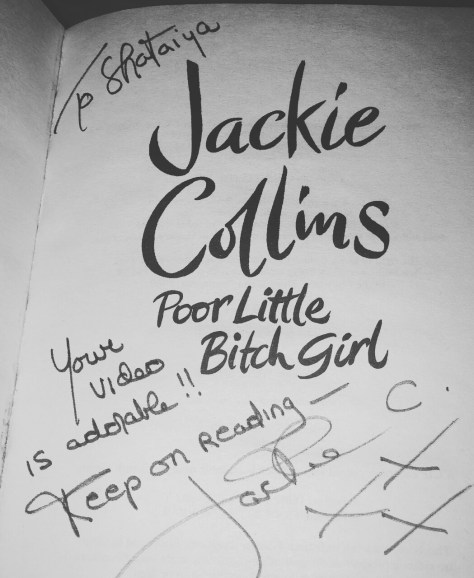 To Shataiya
Jackie
Collins
Poor Little
Bitch Girl
Youre
video
is adorable!!
Keep on reading –
Jackie C.
XXX